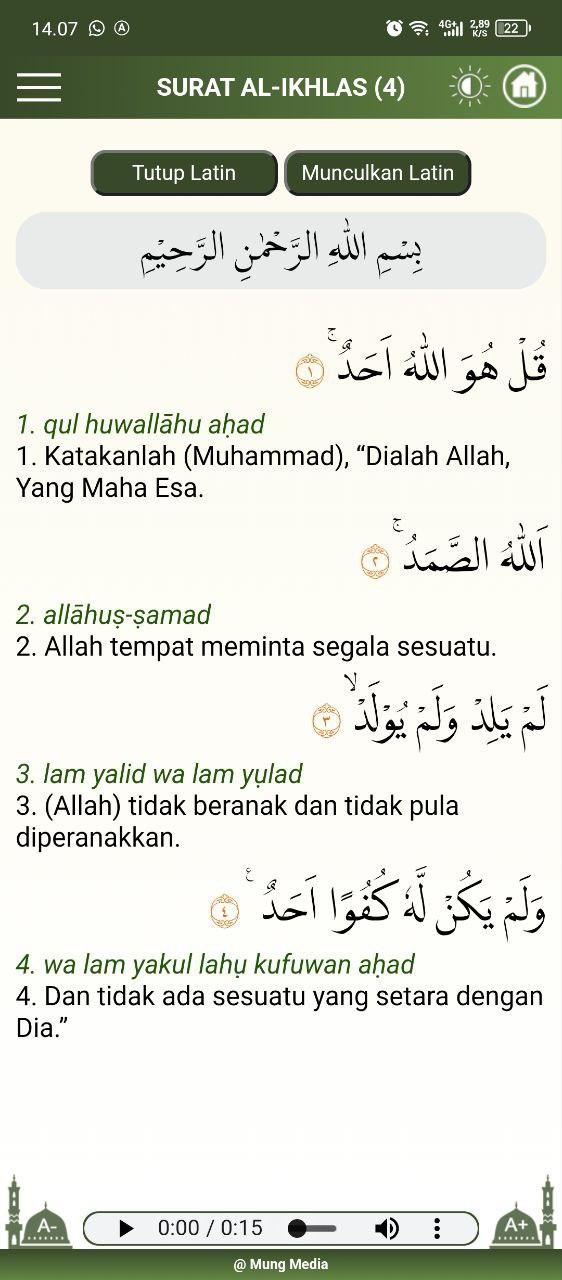 14.07 A 4G+ 2,89 K/S 22
SURAT AL-IKHLAS (4)
Tutup Latin Munculkan Latin
بِسْمِ اللّٰهِ الرَّحْمٰنِ الرَّحِيْمِ
قُلْ هُوَ اللّٰهُ اَحَدٌۚ ١
1. qul huwallāhu aḥad
1. Katakanlah (Muhammad), “Dialah Allah,
Yang Maha Esa.
اَللّٰهُ الصَّمَدُۚ ٢
2. allāhuṣ-ṣamad
2. Allah tempat meminta segala sesuatu.
لَمْ يَلِدْ وَلَمْ يُوْلَدْۙ ٣
3. lam yalid wa lam yụlad
3. (Allah) tidak beranak dan tidak pula
diperanakkan.
وَلَمْ يَكُنْ لَّهٗ كُفُوًا اَحَدٌ ࣖ ٤
4. wa lam yakul lahụ kufuwan aḥad
4. Dan tidak ada sesuatu yang setara dengan
Dia.”
A- 0:00 / 0:15 A+
@ Mung Media